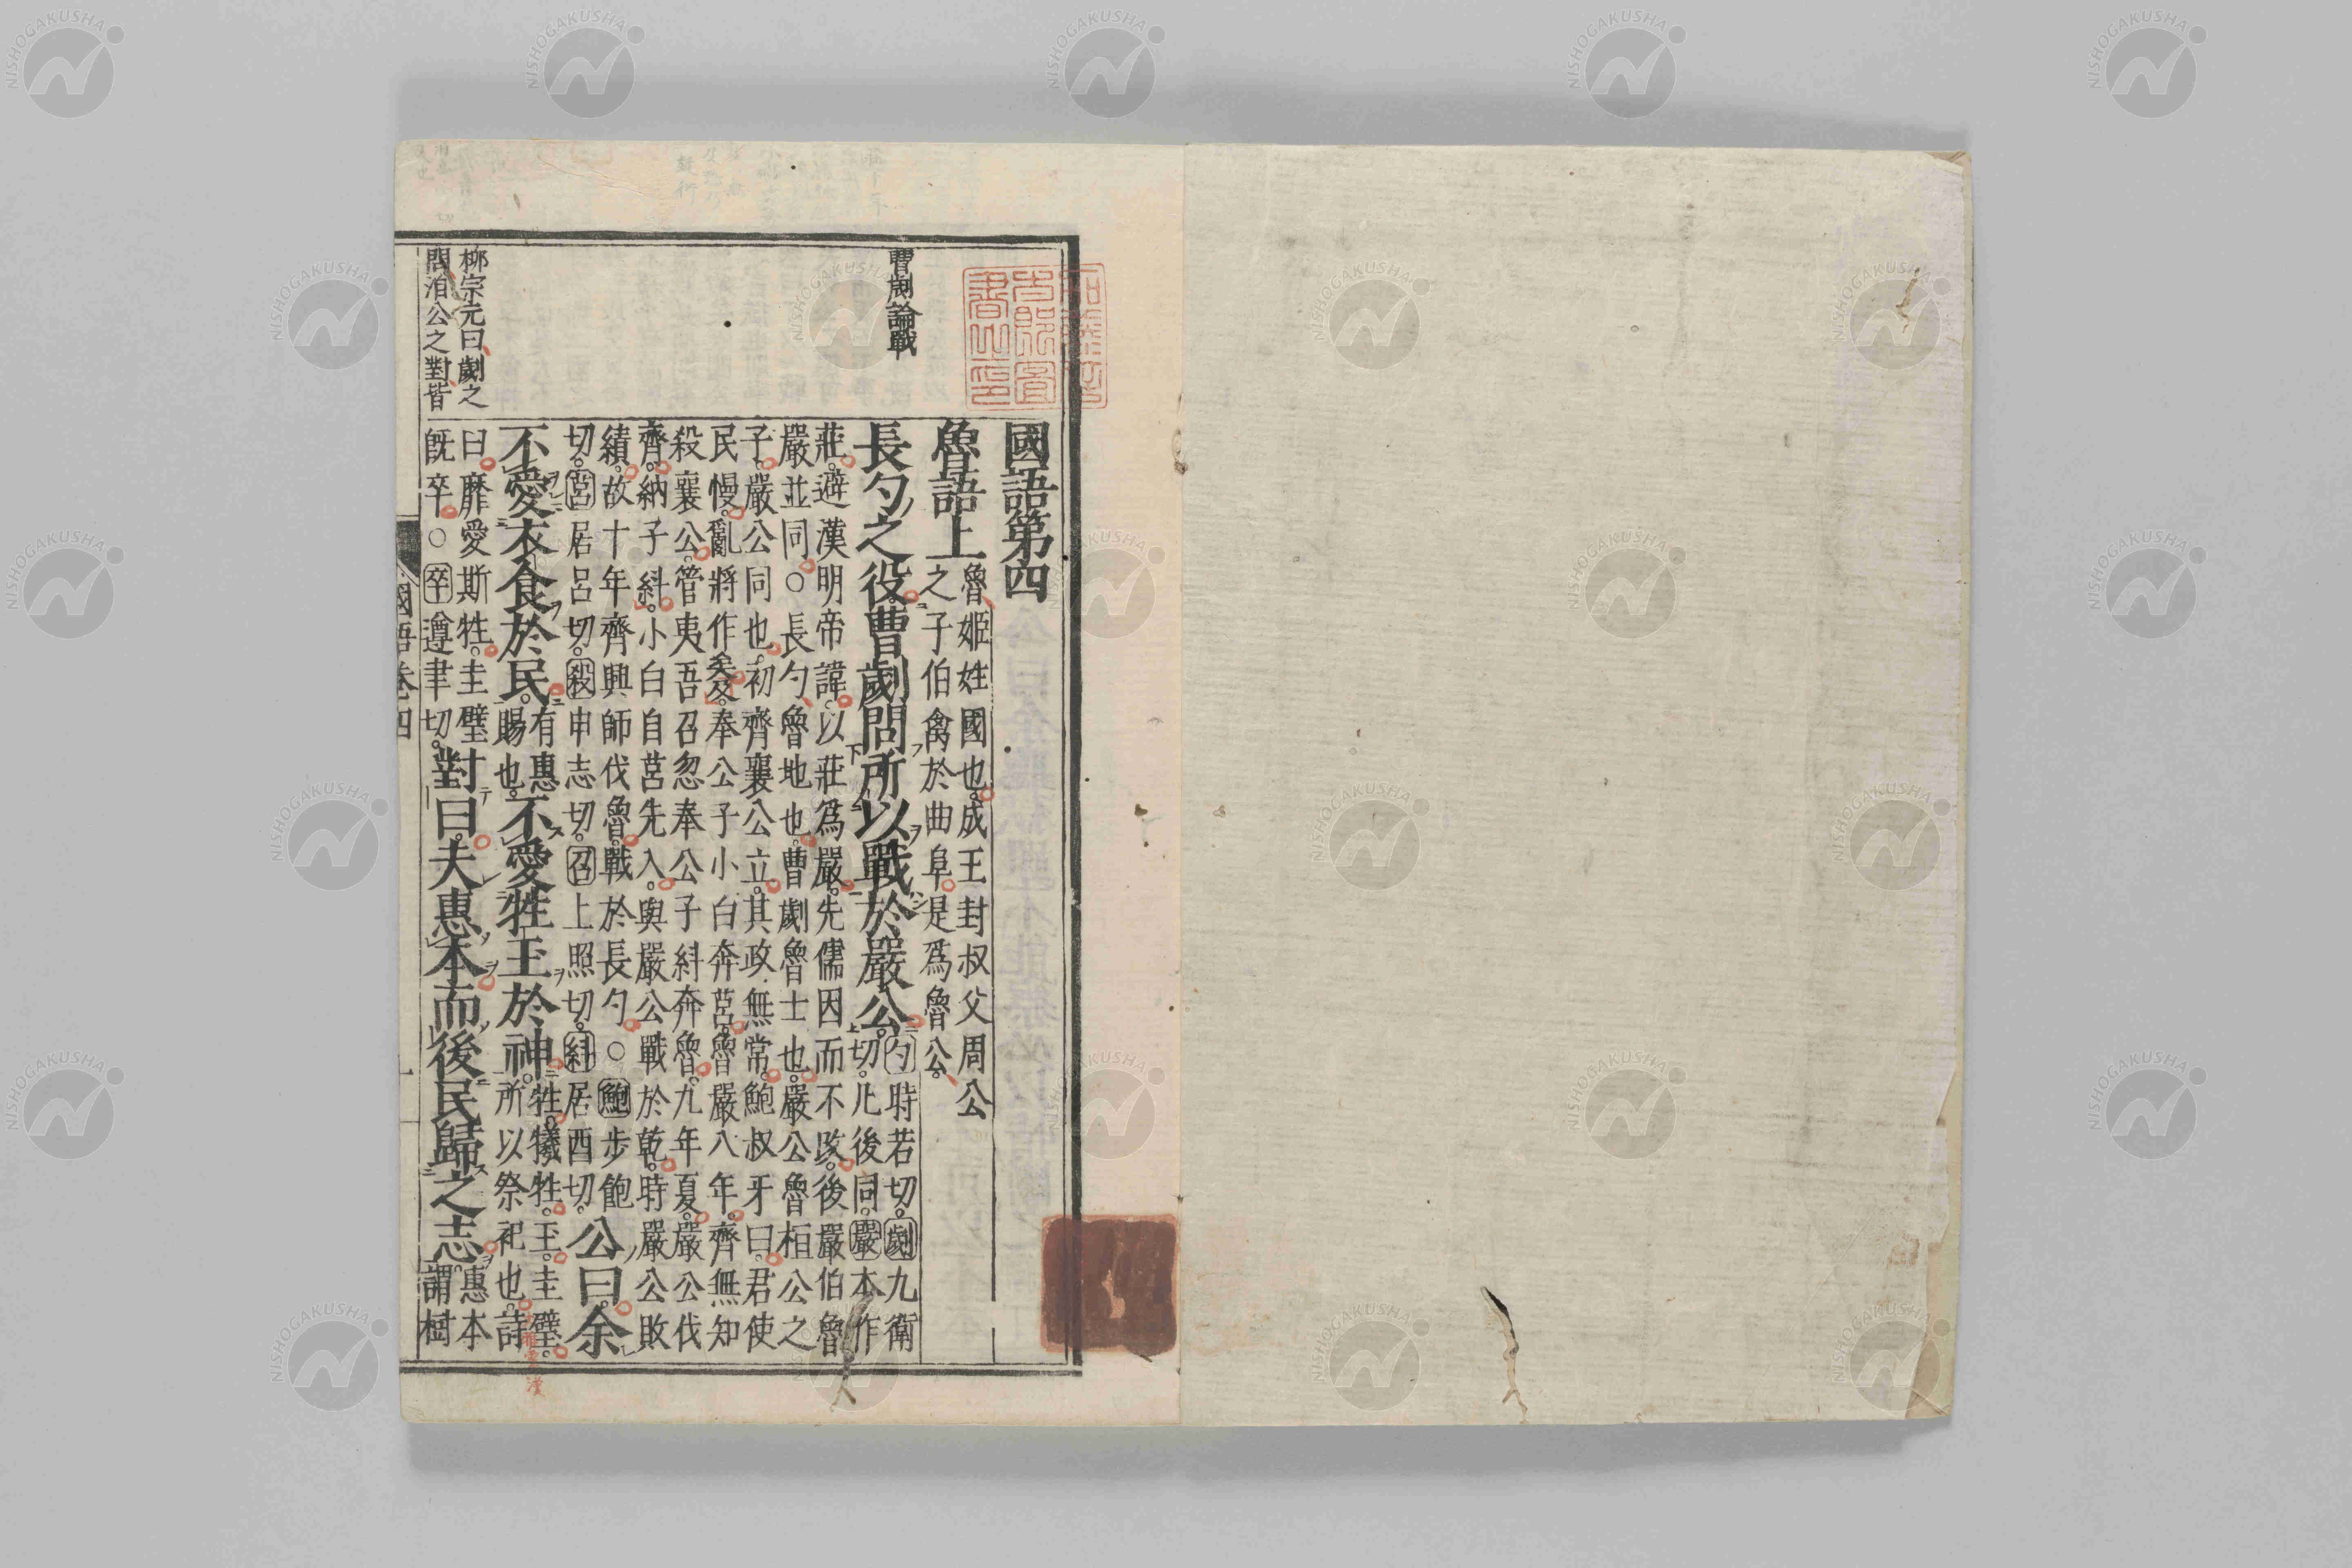 國語第四
魯語上
魯姬姓國也成王封叔父周公
之子伯禽於曲阜是爲魯公
長勺之役曹劌問所以戰於嚴公
勺時若切劌九衛
切凡後同嚴本作
莊避漢明帝諱以莊爲嚴先儒因而不改後嚴伯魯
嚴並同○長勺魯地也曹劌魯士也嚴公魯桓公之
子嚴公同也初齊襄公立其政無常鮑叔牙曰君使
民慢亂將作矣奉公子小白奔莒魯嚴八年齊無知
殺襄公管夷吾召忽奉公子糾奔魯九年夏嚴公伐
齊納子糾小白自莒先入與嚴公戰於乾時嚴公敗
績故十年齊興師伐魯戰於長勺○鮑步飽
切莒居呂切殺申志切召上照切糾居酉切
公曰余
不愛衣食於民
有惠
賜也
不愛牲玉於神
牲犧牲玉圭璧
所以祭祀也詩
曰靡愛斯牲圭璧
旣卒○卒遵聿切
對曰夫惠本而後民歸之志
惠本
謂樹
曹劌論戰
柳宗元曰劌之
問洎公之對皆
國語卷四
NISHOGAKUSHA